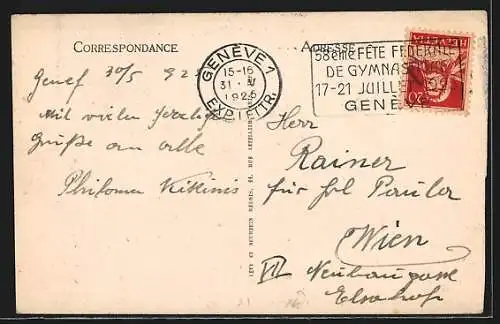 CORRESPONDANCE
ADRESSE
GENÈVE 1
15-16
31. V
1925
EXP. LETTR.
58ème FÊTE FEDERALE
DE GYMNAS
17-21 JUILLET
GENÈVE
HELVETIA
20
Genf 30/5 92
Mit vielen herzlichen
Grüße an alle
Philomen
Herr
Rainer
für Frl Pauler
Wien
VII Neubaugasse
Elsahof